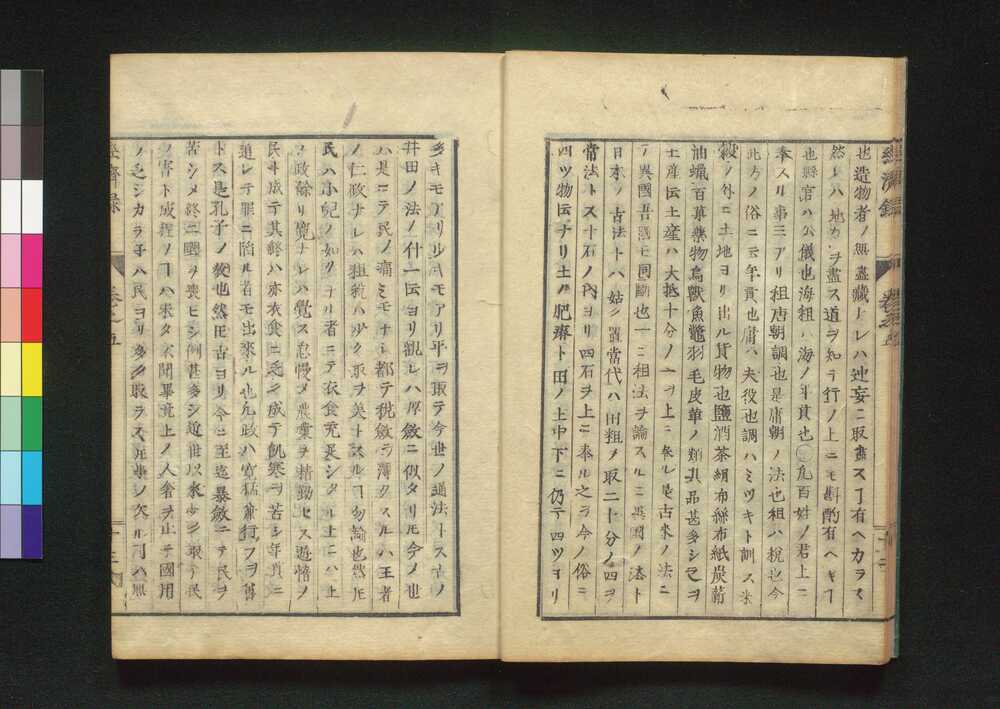 經濟録
巻之五
也造物者ノ無盡藏トレハ迚妄ニ取盡スヿ有ヘカラス
然レハ地力ヲ盡ス道ヲ知テ行ノ上ニモ斟酌有ヘキヿ
也縣官ハ公儀也海租ハ海ノ年貢也〇凡百姓ノ君上ニ
奉スル事三アリ租庸調也是唐朝ノ法也租ハ税也今
此方ノ俗ニ云年貢也庸ハ夫役也調ハミツキト訓ス米
穀ノ外ニ土地ヨリ出ル貨物也鹽酒茶絹布絲布紙炭薪
油蠟百草藥物鳥獸魚鼈羽毛皮革ノ類其品甚多シ之ヲ
土産ト云土産ハ大抵十分ノ一ヲ上ニ奉ル是古來ノ法ニ
テ異國吾國モ同斷也一ニ租法ヲ論スルニ異國ノ法ト
日本ノ古法トハ姑ク置當代ハ田租ヲ取ニ十分ノ四ヲ
常法トス十石ノ内ヨリ四石ヲ上ニ奉ル之ヲ今ノ俗ニ
四ツ物ト云ナリ土ノ肥瘠ト田ノ上中下ニ仍テ四ツヨリ
多キモアリ少キモアリ平ヲ取テ今世ノ通法トス古ノ
井田ノ法ノ什一ト云ヨリ觀レハ厚斂ニ似タリ𪜈今ノ世
ハ是ニテ民ノ痛ミモナシ都テ税斂ヲ薄クスルハ王者
ノ仁政ナレハ租税ハ少ク取ヲ美トスルヿ勿論也然𪜈
民ハ小兒ノ如クナル者ニテ衣食充足シタル上ニハ上
ノ政餘リ寛ナレハ覺ス怠慢メ農業ヲ精勤セス過惰ノ
民ト成テ其終ハ亦衣食ニ乏ク成テ飢寒ヲ苦シ年貢ニ
追レテ罪ニ陷ル者モ出來ル也凡政ハ寛猛兼行フヲ善
トス是孔子ノ教也然𪜈古ヨリ今ニ至迄暴斂ニテ民ヲ
苦シメ終ニ國ヲ喪ヒシ例甚多シ近世以來少シ取テ民
ノ害ト成程ノヿハ未タ不聞畢竟上ノ人奢ヲ止テ國用
ノ乏シカラ子ハ民ヨリ多ク取ラス𪜈事ノ欠ル可ハ無
經濟録
巻之五
十三